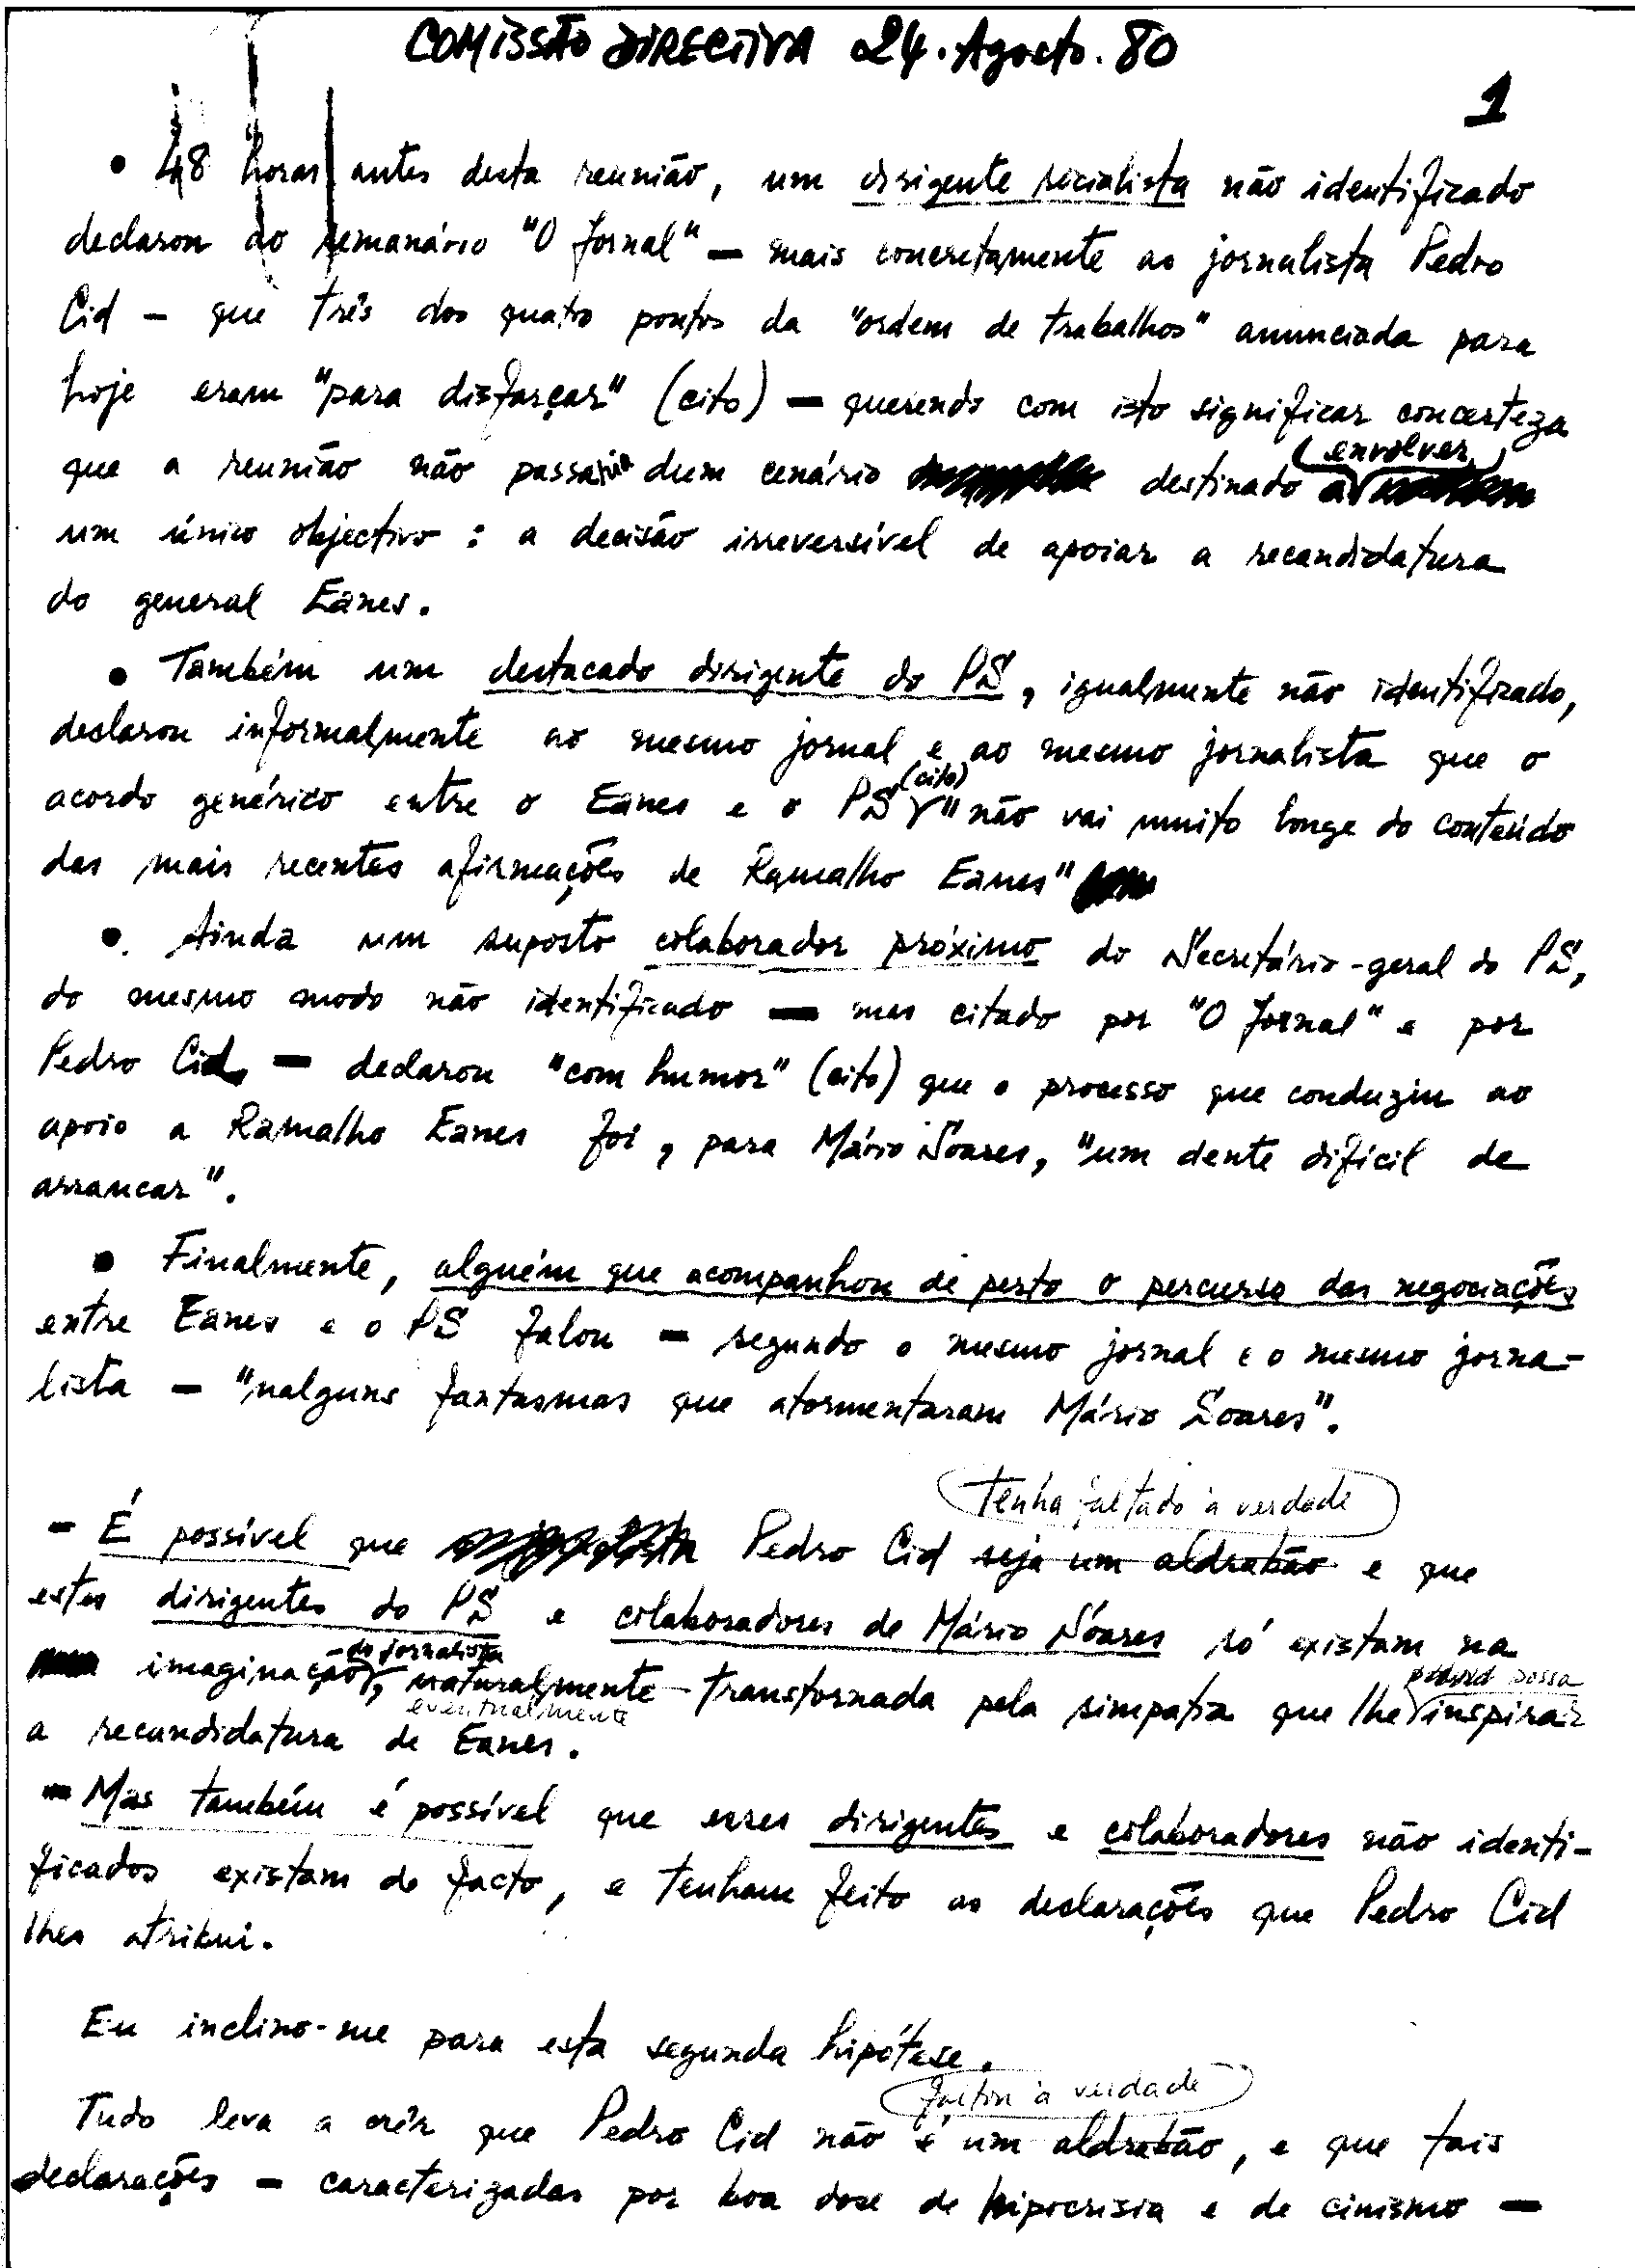 COMISSÃO DIRECTIVA 24. Agosto. 80
1
• 48 horas antes desta reunião, um dirigente socialista não identificado
declarou ao semanário "O Jornal" — mais concretamente ao jornalista Pedro
Cid — que três dos quatro pontos da "ordem de trabalhos" anunciada para
hoje eram "para disfarçar" (cito) — querendo com isto significar concerteza
que a reunião não passaria dum cenário destinado a envolver
um único objectivo: a decisão irreversível de apoiar a recandidatura
do general Eanes.
• Também um destacado dirigente do PS, igualmente não identificado,
declarou informalmente ao mesmo jornal e ao mesmo jornalista que o
acordo genérico entre o Eanes e o PS (cito) "não vai muito longe do conteúdo
das mais recentes afirmações de Ramalho Eanes"
•. Ainda um suposto colaborador próximo do Secretário-geral do PS,
do mesmo modo não identificado — mas citado por "O Jornal" e por
Pedro Cid — declarou "com humor" (cito) que o processo que conduziu ao
apoio a Ramalho Eanes foi, para Mário Soares, "um dente difícil de
arrancar".
• Finalmente, alguém que acompanhou de perto o percurso das negociações
entre Eanes e o PS falou — segundo o mesmo jornal e o mesmo jorna-
lista — "nalguns fantasmas que atormentaram Mário Soares".
tenha faltado à verdade
- É possível que Pedro Cid seja um aldrabão e que
estes dirigentes do PS e colaboradores de Mário Soares só existam na
imaginação do jornalista, naturalmente transtornada pela simpatia que lhe possa inspirar
eventualmente
a recandidatura de Eanes.
- Mas também é possível que esses dirigentes e colaboradores não identi-
ficados existam de facto, e tenham feito as declarações que Pedro Cid
lhes atribui.
Eu inclino-me para esta segunda hipótese.
faltou à verdade
Tudo leva a crêr que Pedro Cid não é um aldrabão, e que tais
declarações — caracterizadas por boa dose de hipocrisia e de cinismo —